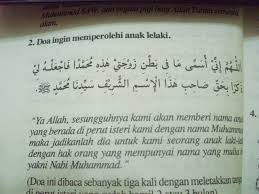 Muhammad SAW, dan
akan,
2. Doa ingin memperolehi anak lelaki.
اَللّٰهُمَّ إِنِّيْ أُسَمِّى مَا فِى بَطْنِ زَوْجَتِيْ هٰذِهِ مُحَمَّدًا فَاجْعَلْهُ لِيْ
بِحَقِّ صَاحِبِ هٰذَا الْإِسْمِ الشَّرِيْفِ سَيِّدِنَا مُحَمَّدٍ ﷺ
"Ya Allah, sesungguhnya kami akan memberi nama
yang berada di perut isteri kami dengan nama Muhammad
maka jadikanlah dia untuk kami seorang anak lelaki
dengan hak orang yang mempunyai nama yang mulia
yakni Nabi Muhammad."
(Doa ini dibaca sebanyak tiga kali dengan meletakkan
di perut isteri yang